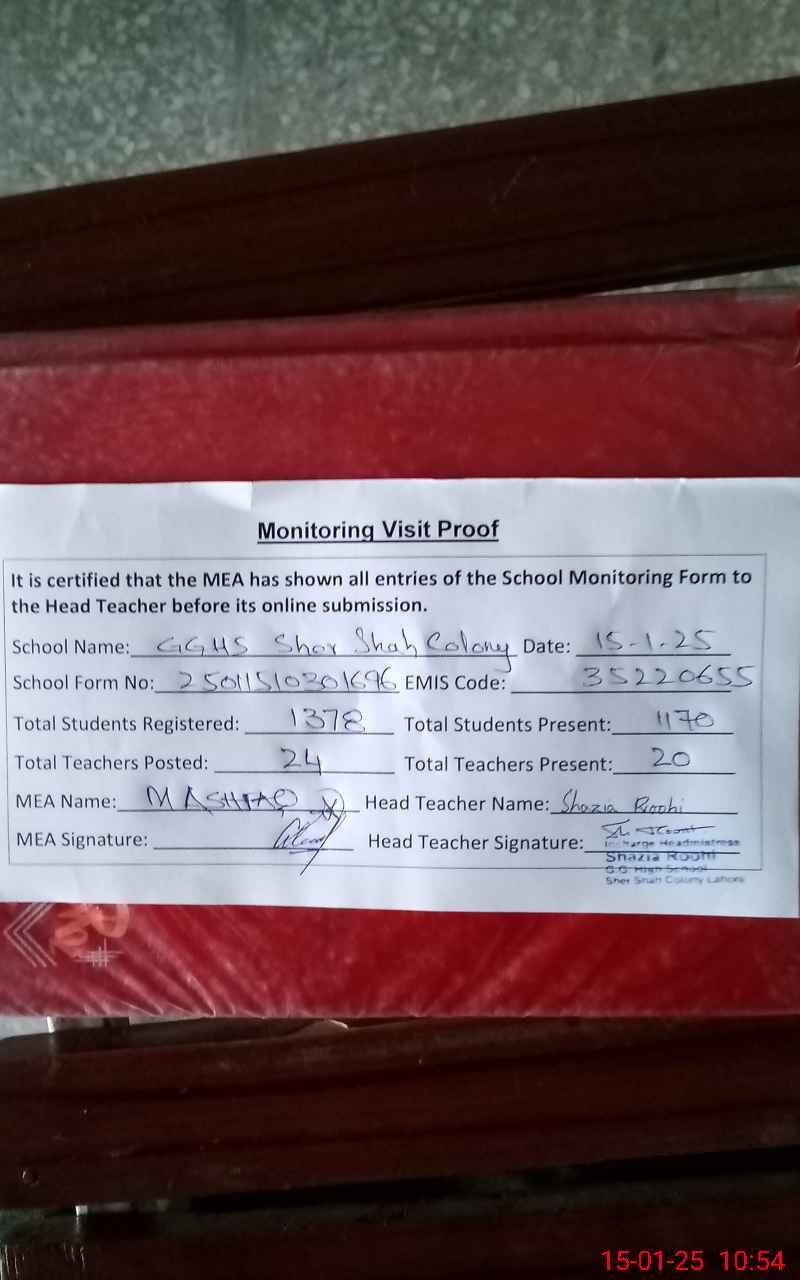 Monitoring Visit Proof
It is certified that the MEA has shown all entries of the School Monitoring Form to
the Head Teacher before its online submission.
School Name: GGHS Sher Shah Colony Date: 15-1-25
School Form No: 25011510301696 EMIS Code: 35220655
Total Students Registered: 1378 Total Students Present: 1170
Total Teachers Posted: 24 Total Teachers Present: 20
MEA Name: M ASHFAQ Head Teacher Name: Shazia Roohi
MEA Signature: Head Teacher Signature:
Incharge Headmistress
Shazia Roohi
G.G. High School
Sher Shah Colony Lahore
15-01-25 10:54